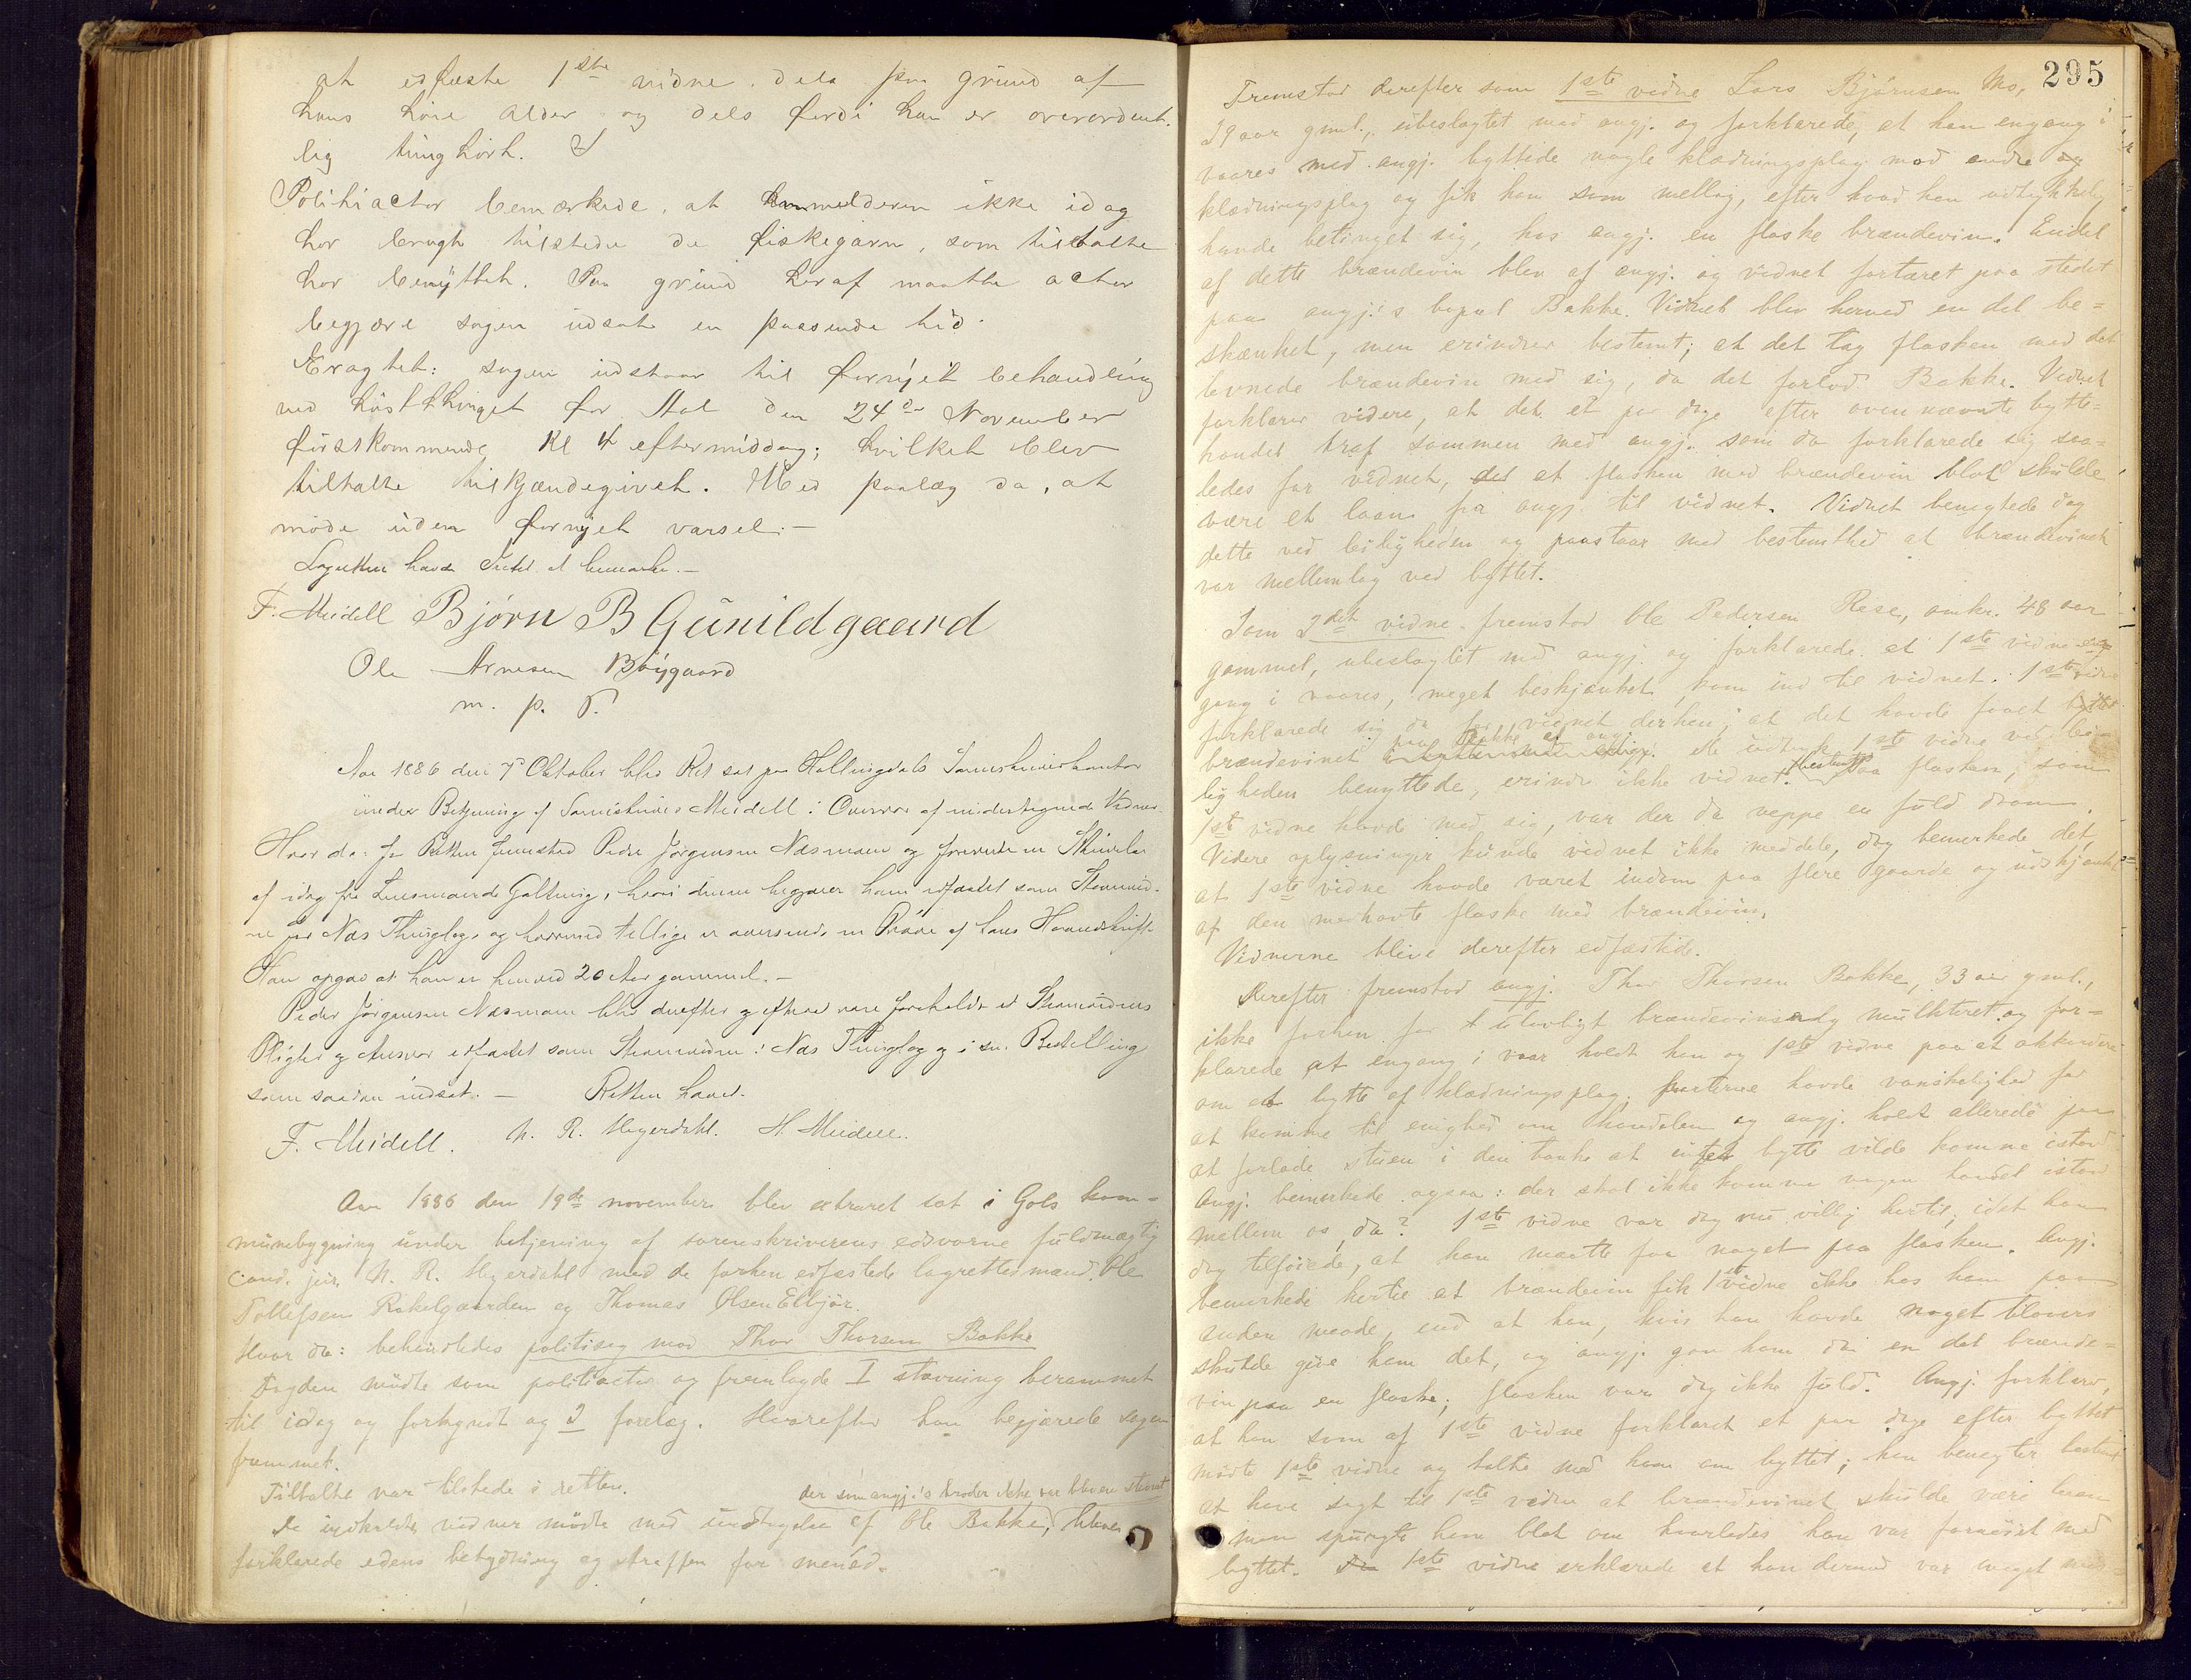 at edfæste 1ste vidne, dels paa grund af
hans höie alder og dels fordi han er overordent-
lig tunghört.
Politiactor bemærkede, at anmelderen ikke idag
har bragt tilstede de fiskegarn, som tiltalte
har benyttet. Paa grund heraf maatte actor
begjære sagen udsat en passende tid.
Eragtet: sagen udstaar til fornyet behandling
ved höstthinget for Aal den 24de November
förstkommende Kl 4 eftermiddag; hvilket blev
tiltalte tilkjendegivet. Med paalæg da, at
möde uden fornyet varsel. —
Lagretten havde Intet at bemærke. —
F. Meidell Björn B Gunildgaard
Ole Arnesen Böygaard
m. p. P.
Aar 1886 den 7de Oktober blev Ret sat paa Hallingdals Sorenskriverkontor
under Betjening af Sorenskriver Meidell i Overvær af undertegnede Vidner.
Hvor da: for Retten fremstod Peder Jörgensen Næsmoen og foreviste en Skrivelse
af idag fra Lensmand Galtung, hvori denne begjærer ham edfæstet som Stevnevid-
ne for Næs Thinglag, og hvorved tillige er oversendt en Pröve af hans Haandskrift.
Han opgav at han er henved 20 Aar gammel. —
Peder Jörgensen Næsmoen blev derefter og efterat være foreholdt et Stevnevidnes
Pligter og Ansvar edfæstet som Stevnevidne i Næs Thinglag og i sin Bestilling
som saadan indsat. — Retten hævet.
F. Meidell. N. R. Heyerdahl. H. Meidell.
Aar 1886 den 19de november blev extraret sat i Gols kom-
munebygning under betjening af sorenskriverens edsvorne fuldmægtig
cand. jur. N. R. Heyerdahl med de forhen edfæstede lagrettesmænd Ole
Tollefsen Rokelgaarden og Thomas Olsen Eltjör.
Hvor da: behandledes politisag mod Thor Thorsen Bakke
Fogden mödte som politiactor og fremlagde I stævning berammet
til idag og forkyndt og 2 forelæg. Hvorefter han begjærede sagen
fremmet.
Tiltalte var tilstede i retten.
der som angj's broder ikke var bleven stevnet
De indkaldte vidner mödte med undtagelse af Ole Bakke, bleve
forklarede edens betydning og straffen for mened.
295
Fremstod derefter som 1ste vidne Lars Björnsen Mo,
29 aar gml., ubeslægtet med angj. og forklarede, at han engang i
vaares med angj. byttede nogle klædningsplag mod andre og
klædningsplag og fik han som mellag, efter hvad han udtrykkelig
havde betinget sig, hos angj. en flaske brændevin. Endel
af dette brændevin blev af angj. og vidnet fortæret paa stedet
paa angj.'s bopæl Bakke. Vidnet blev herved en del be-
skænket, men erindrer bestemt, at det tog flasken med det
levnede brændevin med sig, da det forlod Bakke. Vidnet
forklarer videre, at det et par dage efter ovennævnte bytte-
handel traf sammen med angj. som da forklarede sig saa-
ledes for vidnet, det at flasken med brændevin blot skulde
være et laan fra angj. til vidnet. Vidnet benegtede dog
dette ved leiligheden og paastaar med bestemthed at brændevinet
var mellemlag ved byttet.
Som 2det vidne fremstod Ole Pedersen Rese, omkr. 48 aar
gammel, ubeslægtet med angj. og forklarede, at 1ste vidne en-
gang i vaares, meget beskjænket, kom ind til vidnet. 1ste vidne
forklarede sig da for vidnet derhen, at det havde faaet
brændevinet paa Bakke af angj. De udtryk 1ste vidne ved lei-
ligheden benyttede, erindrer ikke vidnet bestemt. Paa flasken, som
1ste vidne havde med sig, var der da neppe en fuld dram.
Videre oplysninger kunde vidnet ikke meddele, dog bemerkede det,
at 1ste vidne havde været indom paa flere gaarde og udskjænket
af den medhavte flaske med brændevin.
Vidnerne bleve derefter edfæstede.
Derefter fremstod angj. Thor Thorsen Bakke, 33 aar gml.,
ikke forhen for ulovligt brændevinsalg mulkteret og for-
klarede at engang i vaar holdt han og 1ste vidne paa at akkordere
om et bytte af klædningsplag. Parterne havde vanskelighed for
at komme til enighed om handelen og angj. holdt allerede paa
at forlade stuen i den tanke at intet bytte vilde komme istand
Angj. bemerkede ogsaa: der skal ikke komme nogen handel istand
mellem os, da? 1ste vidne var dog nu villig hertil, idet han
dog tilföiede, at han maatte faa noget paa flasken. Angj.
bemerkede hertil at brændevin fik 1ste vidne ikke hos ham paa
anden maade, end at han, hvis han havde noget tilovers
skulde give ham det, og angj. gav ham da en del brænde-
vin paa en flaske; flasken var dog ikke fuld. Angj. forklarer,
at han som af 1ste vidne forklaret et par dage efter byttet
mödte 1ste vidne og talte med ham om byttet; han benegter bestemt
at have sagt til 1ste vidne at brændevinet skulde være laan
men spurgte ham blot om hvorledes han var fornöiet med
byttet. 1ste vidne erklærede at han dermed var meget mis-